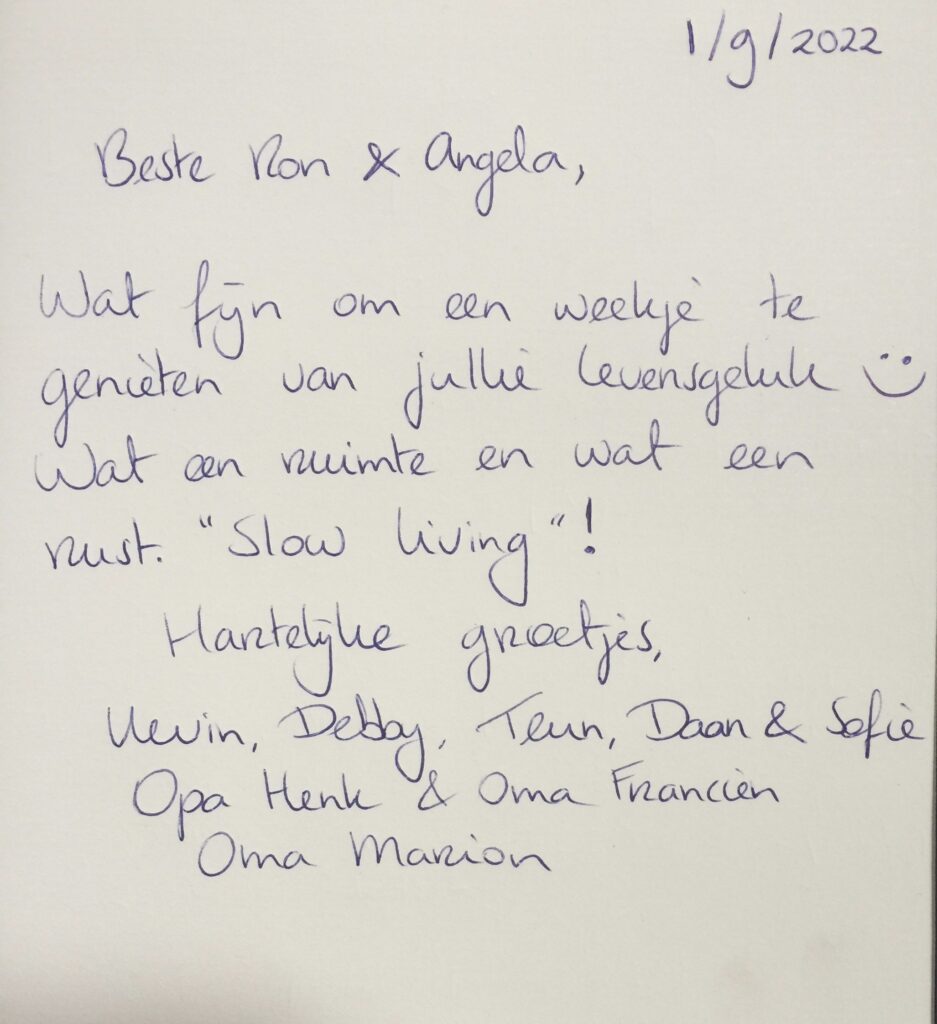 1/9/2022
Beste Ron & Angela,
Wat fijn om een weekje te
genieten van jullie levensgeluk :)
Wat een ruimte en wat een
rust. "Slow living"!
Hartelijke groetjes,
Kevin, Debby, Teun, Daan & Sofie
Opa Henk & Oma Francien
Oma Marion